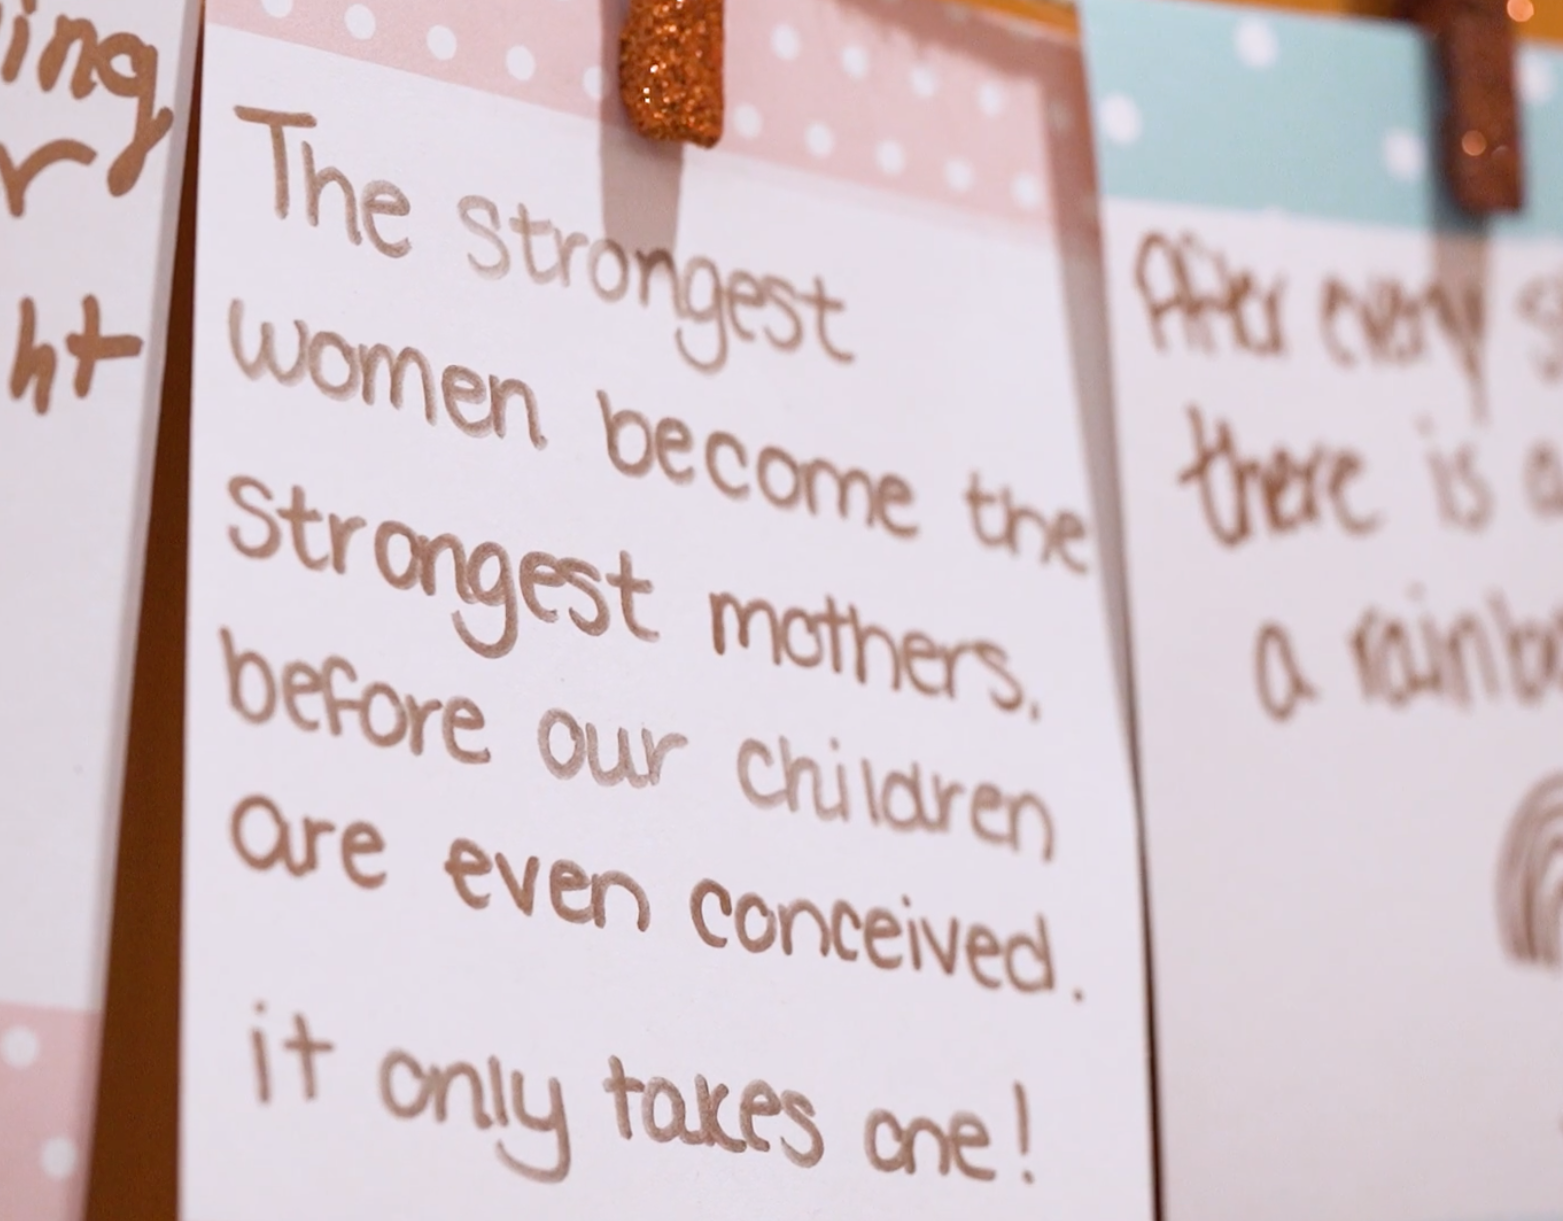 ing
r
ht
The strongest
women become the
Strongest mothers.
before our children
are even conceived.
it only takes one!
After every
there is a
a rainbo